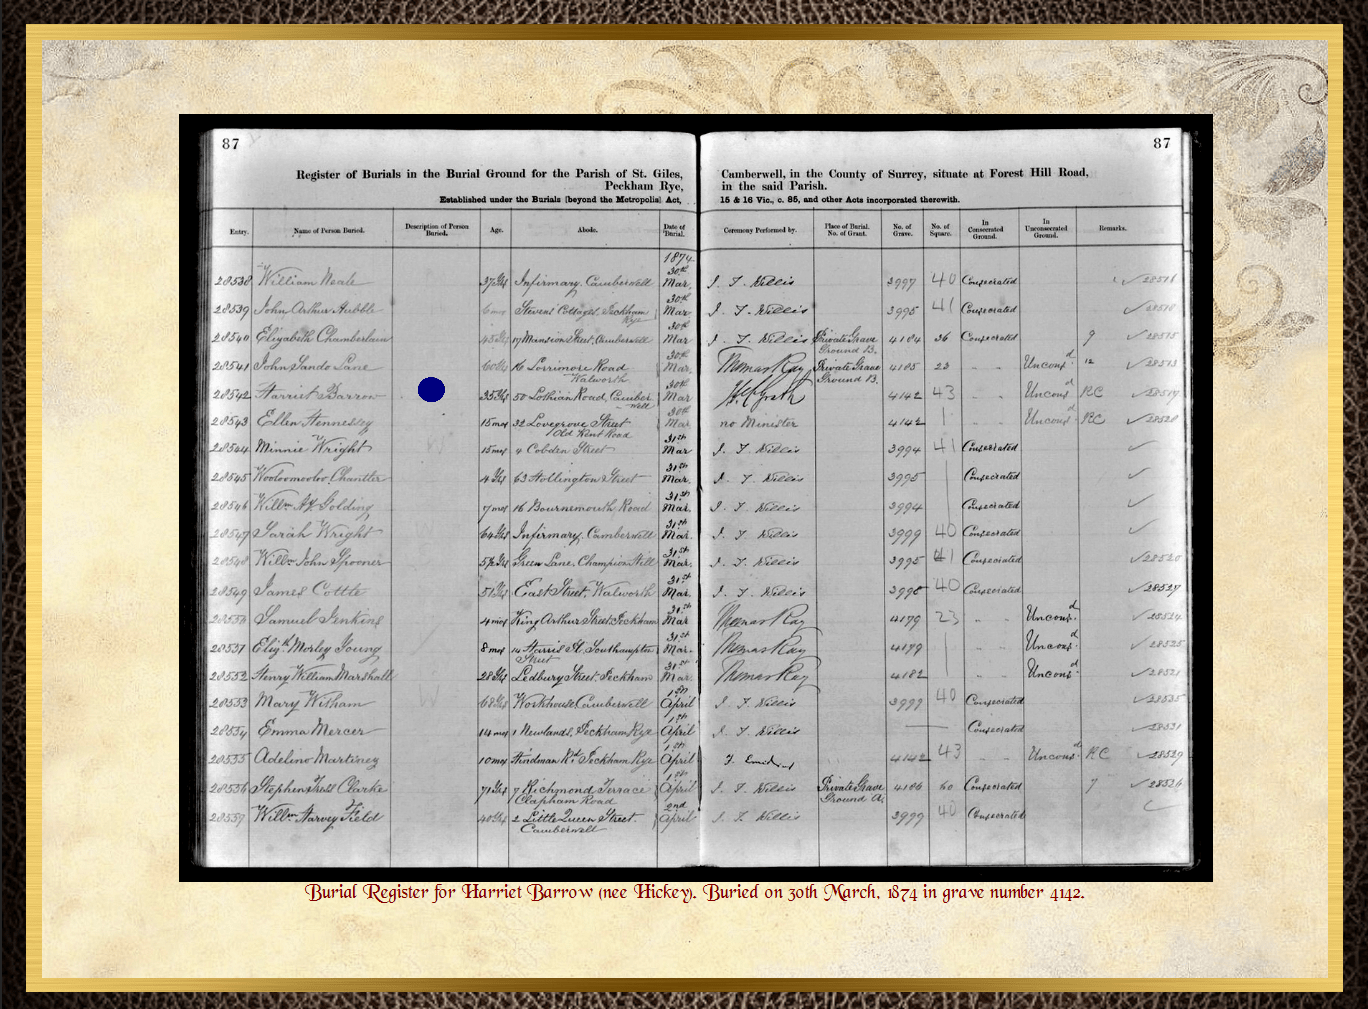 87
87
Register of Burials in the Burial Ground for the Parish of St. Giles, Camberwell, in the County of Surrey, situate at Forest Hill Road,
Peckham Rye, in the said Parish.
Established under the Burials [beyond the Metropolis] Act, 15 & 16 Vic., c. 85, and other Acts incorporated therewith.
Entry. Name of Person Buried. Description of Person Buried. Age. Abode. Date of Burial. Ceremony Performed by. Place of Burial. No. of Grant. No. of Grave. No. of Square. In Consecrated Ground. In Unconsecrated Ground. Remarks.
1874
28538 William Neale 37 Yrs Infirmary, Camberwell 30th Mar. Willis 3997 40 Consecrated
28539 John Arthur Hubble Stevens Cottages, Peckham Rye 30th Mar Willis 3995 41 Consecrated
28540 Elizabeth Chamberlain 17 Mansion Street, Camberwell 30th Mar Willis Private Grave Ground B. 4184 36 Consecrated
28541 John Sands Lane 16 Lorrimore Road Walworth 30th Mar. Thomas Ray Private Grave Ground B. 4185 23 Uncons.d
28542 Harriet Barrow 35 Yrs 50 Lothian Road, Camberwell 30th Mar 4142 43 Uncons.d RC
28543 Ellen Hennesley 15 mos 32 Lovegrove Street Old Kent Road 30th Mar no Minister 4142 Uncons.d RC
28544 Minnie Wright 15 mos 4 Cobden Street 31st Mar Willis 3994 41 Consecrated
28545 Wooloomooloo Chantler 4 Yrs 63 Hollington Street 31st Mar. Willis 3995 Consecrated
28546 Willm Golding 7 mos 16 Bournemouth Road 31st Mar. Willis 3994 Consecrated
28547 Sarah Wright 64 Yrs Infirmary, Camberwell 31st Mar. Willis 3999 40 Consecrated
28548 Willm John Spooner Green Lane, Champion Hill 31st Mar. Willis 3995 41 Consecrated 28520
28549 James Cottle 51 Yrs East Street, Walworth 31st Mar Willis 40 Consecrated 28527
28550 Samuel Jenkins 4 mos King Arthur Street, Peckham 31st Mar Thomas Ray 4179 23 Uncons.d 28524
Eliz.th Morley Young 8 mos 14 Harris St, Southampton Street 31st Mar. Thomas Ray 4179 Uncons.d 28525
28552 Henry William Marshall 28 Yrs Ledbury Street, Peckham 31st Mar. Thomas Ray 4182 Uncons.d 28521
28553 Mary Witham 68 Yrs Workhouse, Camberwell 1st April Willis 3999 40 Consecrated
28554 Emma Mercer 14 mos 1 Newlands, Peckham Rye 1st April Willis Consecrated 28531
28555 Adelino Martinez 10 mos Hindman Rd Peckham Rye 1st April 4142 43 Uncons.d RC 28529
28556 Stephen Clarke 71 Yrs 7 Richmond Terrace Clapham Road 1st April Willis Private Grave Ground A. 4186 60 Consecrated 28526
28557 Willm Harvey Field 40 Yrs 2 Little Queen Street. Camberwell 2nd April Willis 3999 40 Consecrated
Burial Register for Harriet Barrow (nee Hickey). Buried on 30th March, 1874 in grave number 4142.